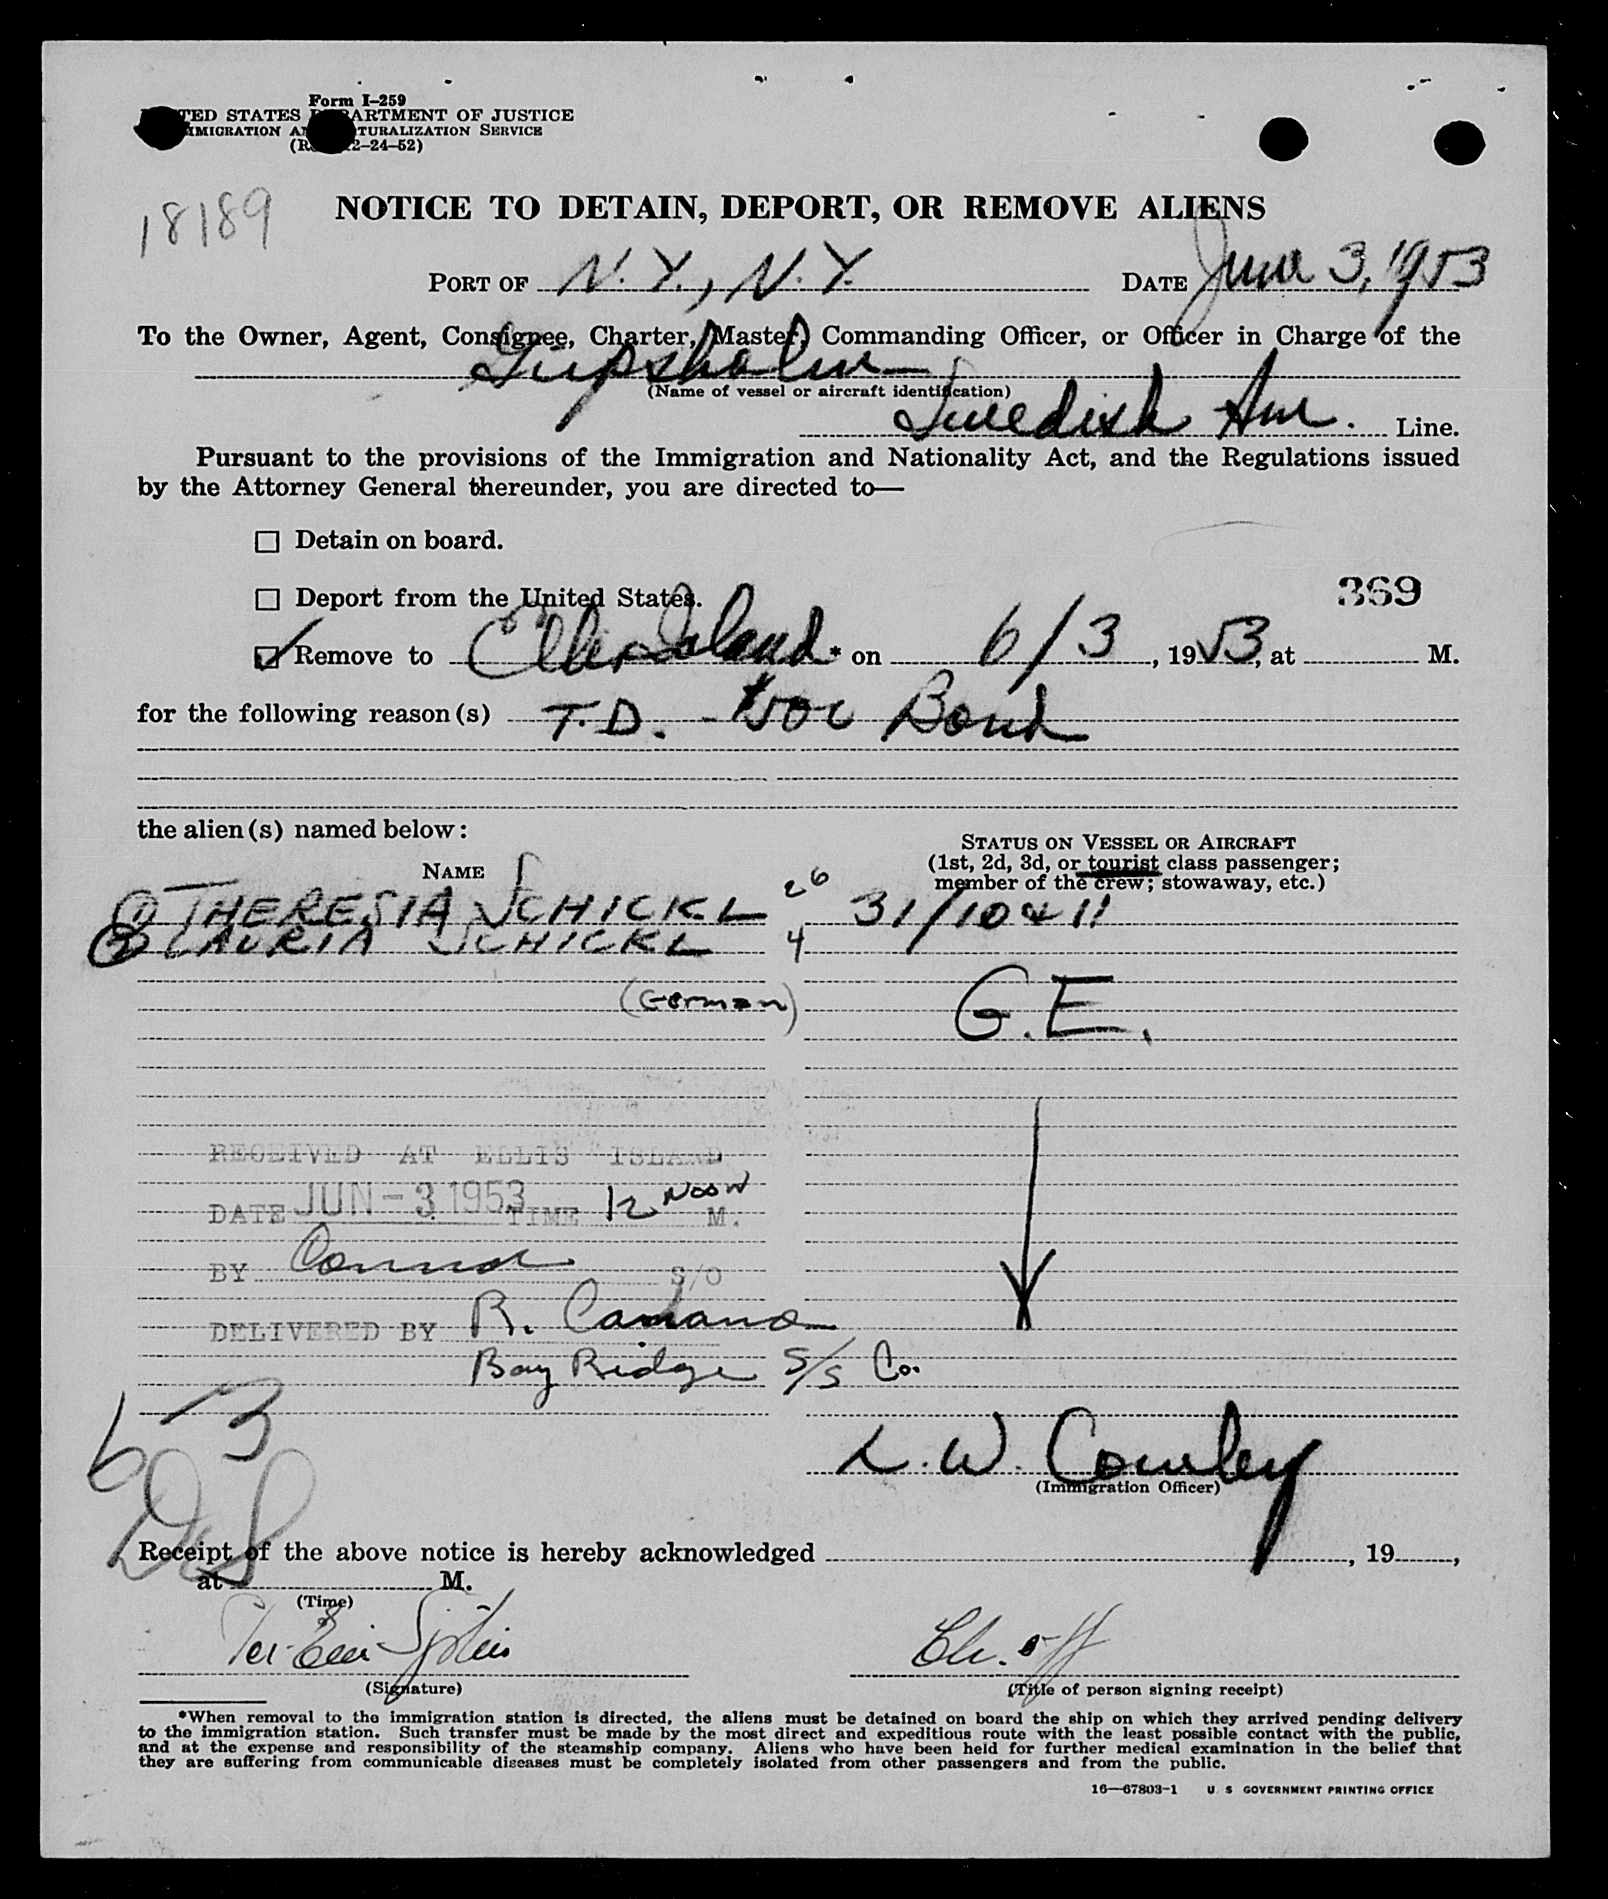 Form I-259
UNITED STATES DEPARTMENT OF JUSTICE
IMMIGRATION AND NATURALIZATION SERVICE
(Rev. 12-24-52)
18189
NOTICE TO DETAIN, DEPORT, OR REMOVE ALIENS
PORT OF N.Y., N.Y. DATE June 3, 1953
To the Owner, Agent, Consignee, Charter, Master, Commanding Officer, or Officer in Charge of the
Gripsholm
(Name of vessel or aircraft identification)
Swedish Am. Line.
Pursuant to the provisions of the Immigration and Nationality Act, and the Regulations issued
by the Attorney General thereunder, you are directed to—
☐ Detain on board.
☐ Deport from the United States.
369
☑ Remove to Ellis Island* on 6/3, 1953, at M.
for the following reason(s) T.D. - Bond
the alien(s) named below:
STATUS ON VESSEL OR AIRCRAFT
NAME
(1st, 2d, 3d, or tourist class passenger;
member of the crew; stowaway, etc.)
① THERESIA SCHICKL 26 31/10 & 11
② LAURIA SCHICKL 4
(German) G.E.
RECEIVED AT ELLIS ISLAND
DATE JUN -3 1953 TIME 12 Noon M.
BY S/O
DELIVERED BY R.
Bay Ridge S/S Co.
6 3
L. W.
(Immigration Officer)
Receipt of the above notice is hereby acknowledged , 19 ,
at M.
(Time)
Ch. off
(Signature) (Title of person signing receipt)
*When removal to the immigration station is directed, the aliens must be detained on board the ship on which they arrived pending delivery
to the immigration station. Such transfer must be made by the most direct and expeditious route with the least possible contact with the public,
and at the expense and responsibility of the steamship company. Aliens who have been held for further medical examination in the belief that
they are suffering from communicable diseases must be completely isolated from other passengers and from the public.
16—67803-1 U S GOVERNMENT PRINTING OFFICE